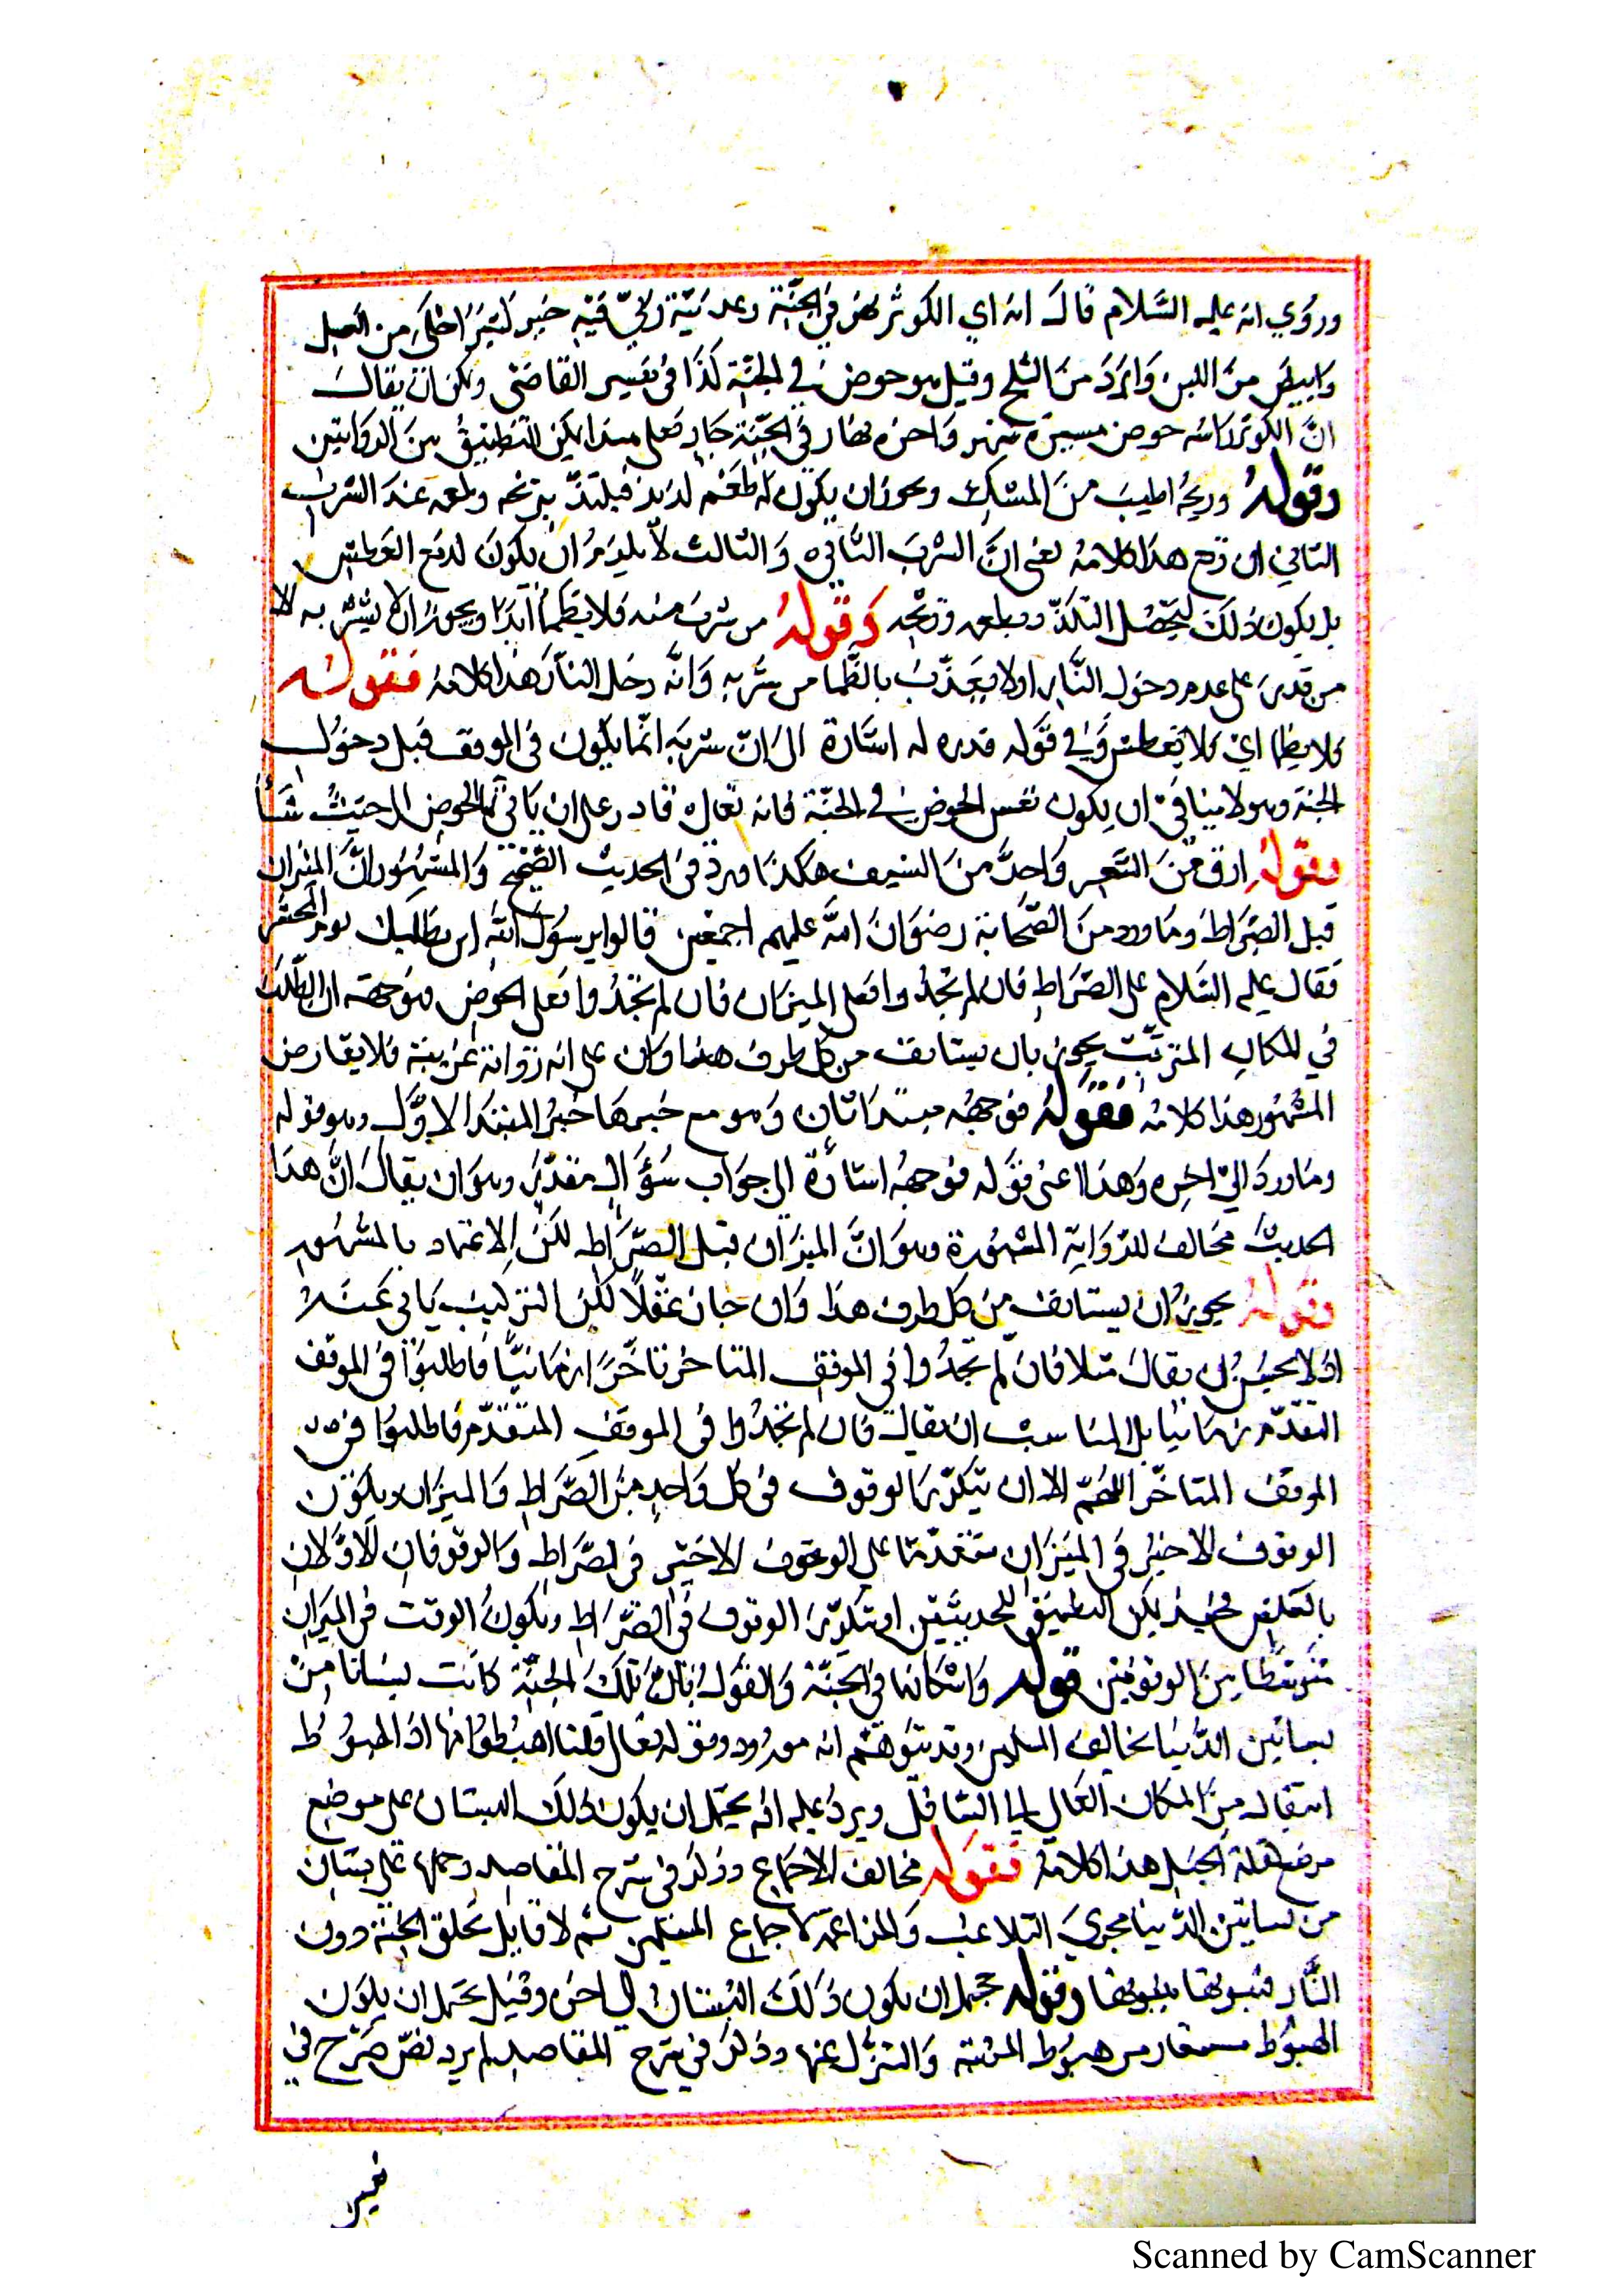 وروي انه عليه السلام قال انه اي الكوثر نهر في الجنة وعدنيه ربي فيه خير كثير احلى من العسل
وابيض من اللبن وابرد من الثلج وقيل هو حوض في الجنة كذا في تفسير القاضي ويمكن ان يقال
ان الكوثر راسه حوض مسيرة شهر واخره نهار في الجنة جار فعلى هذا يمكن التطبيق بين الروايتين
وقوله وريحه اطيب من المسك ويجوز ان يكون له طعم لذيذ فيلتذ بريحه وطعمه عند الشرب
الثاني ان وقع هذا كلامه يعني ان الشرب الثاني والثالث لا يلزم ان يكون لدفع العطش
بل يكون ذلك ليحصل التلذذ بطعمه وريحه وقوله من شرب منه فلا يظمأ ابدا ويجوز ان لا يشرب به الا
من قدر على عدم دخول النار او لا يعذب بالظمأ من شربه وانه دخل النار هذا كلامه فقوله
فلا يظمأ اي فلا يعطش وفي قوله قدر له اشارة الى ان شربه انما يكون في الموقف قبل دخول
الجنة وهو لا ينافي ان يكون نفس الحوض في الجنة فانه تعالى قادر على ان ياتي بالحوض الى حيث شاء
وقوله ارق من الشعر واحد من السيف هكذا ورد في الحديث الصحيح والمشهور ان الميزان
قبل الصراط وما ورد من الصحابة رضوان الله عليهم اجمعين قالوا يرسول الله اين نطلبك يوم المحشر
فقال عليه السلام على الصراط فان لم تجدوا فعلى الميزان فان لم تجدوا فعلى الحوض فوجهه ان الطلب
في المكان المترتب يجوز بان يستانف من كل طرف هذا وكان على انه رواية غريبة فلا يعارض
المشهور هذا كلامه فقوله فوجهه مبتدا ثان وهو مع خبرها خبر المبتدا الاول وهو قوله
وما ورد الى اخره وهذا اعني قوله فوجهه اشارة الى جواب سؤال مقدر وهو ان يقال ان هذا
الحديث مخالف للرواية المشهورة وهو ان الميزان قبل الصراط لكن الاعتماد بالمشهور
وقوله يجوز ان يستانف من كل طرف هذا وان جاز عقلا لكن التركيب يابى عنه
اذ لا يحسن ان يقال مثلا فان لم تجدوا في الموقف المتاخر تاخرا زمانيا فاطلبوا في الموقف
المتقدم زمانيا بل المناسب ان يقال فان لم تجدوا في الموقف المتقدم فاطلبوا في
الموقف المتاخر اللهم الا ان يتكرر الوقوف في كل واحد من الصراط والميزان ويكون
الوقوف الاخير في الميزان متقدما على الوقوف الاخير في الصراط والوقوفان الاولان
بالعكس فحينئذ يمكن التطبيق للحديثين او يتكرر الوقوف في الصراط ويكون الوقت في الميزان
متوسطا بين الوقوفين قوله واسكانها في الجنة والقول بان تلك الجنة كانت بستانا من
بساتين الدنيا يخالف المسلمين وقد يتوهم انه مردود بقوله تعالى قلنا اهبطوا منها اذ الهبوط
انتقال من المكان العالي الى السافل ويرد عليه انه يحتمل ان يكون ذلك البستان على موضع
مرتفع كقلة الجبل هذا كلامه فقوله مخالف الاجماع وذكر في شرح المقاصد وحملها على بستان
من بساتين الدنيا مجرى التلاعب والمراغمة لاجماع المسلمين ثم لا قايل بخلق الجنة دون
النار فثبوتها ثبوتها وقوله يحتمل ان يكون ذلك البستان الى اخره وقيل يحتمل ان يكون
الهبوط مستعار من هبوط المرتبة والتنزل عنها وذكر في شرح المقاصد لم يرد نص صريح في